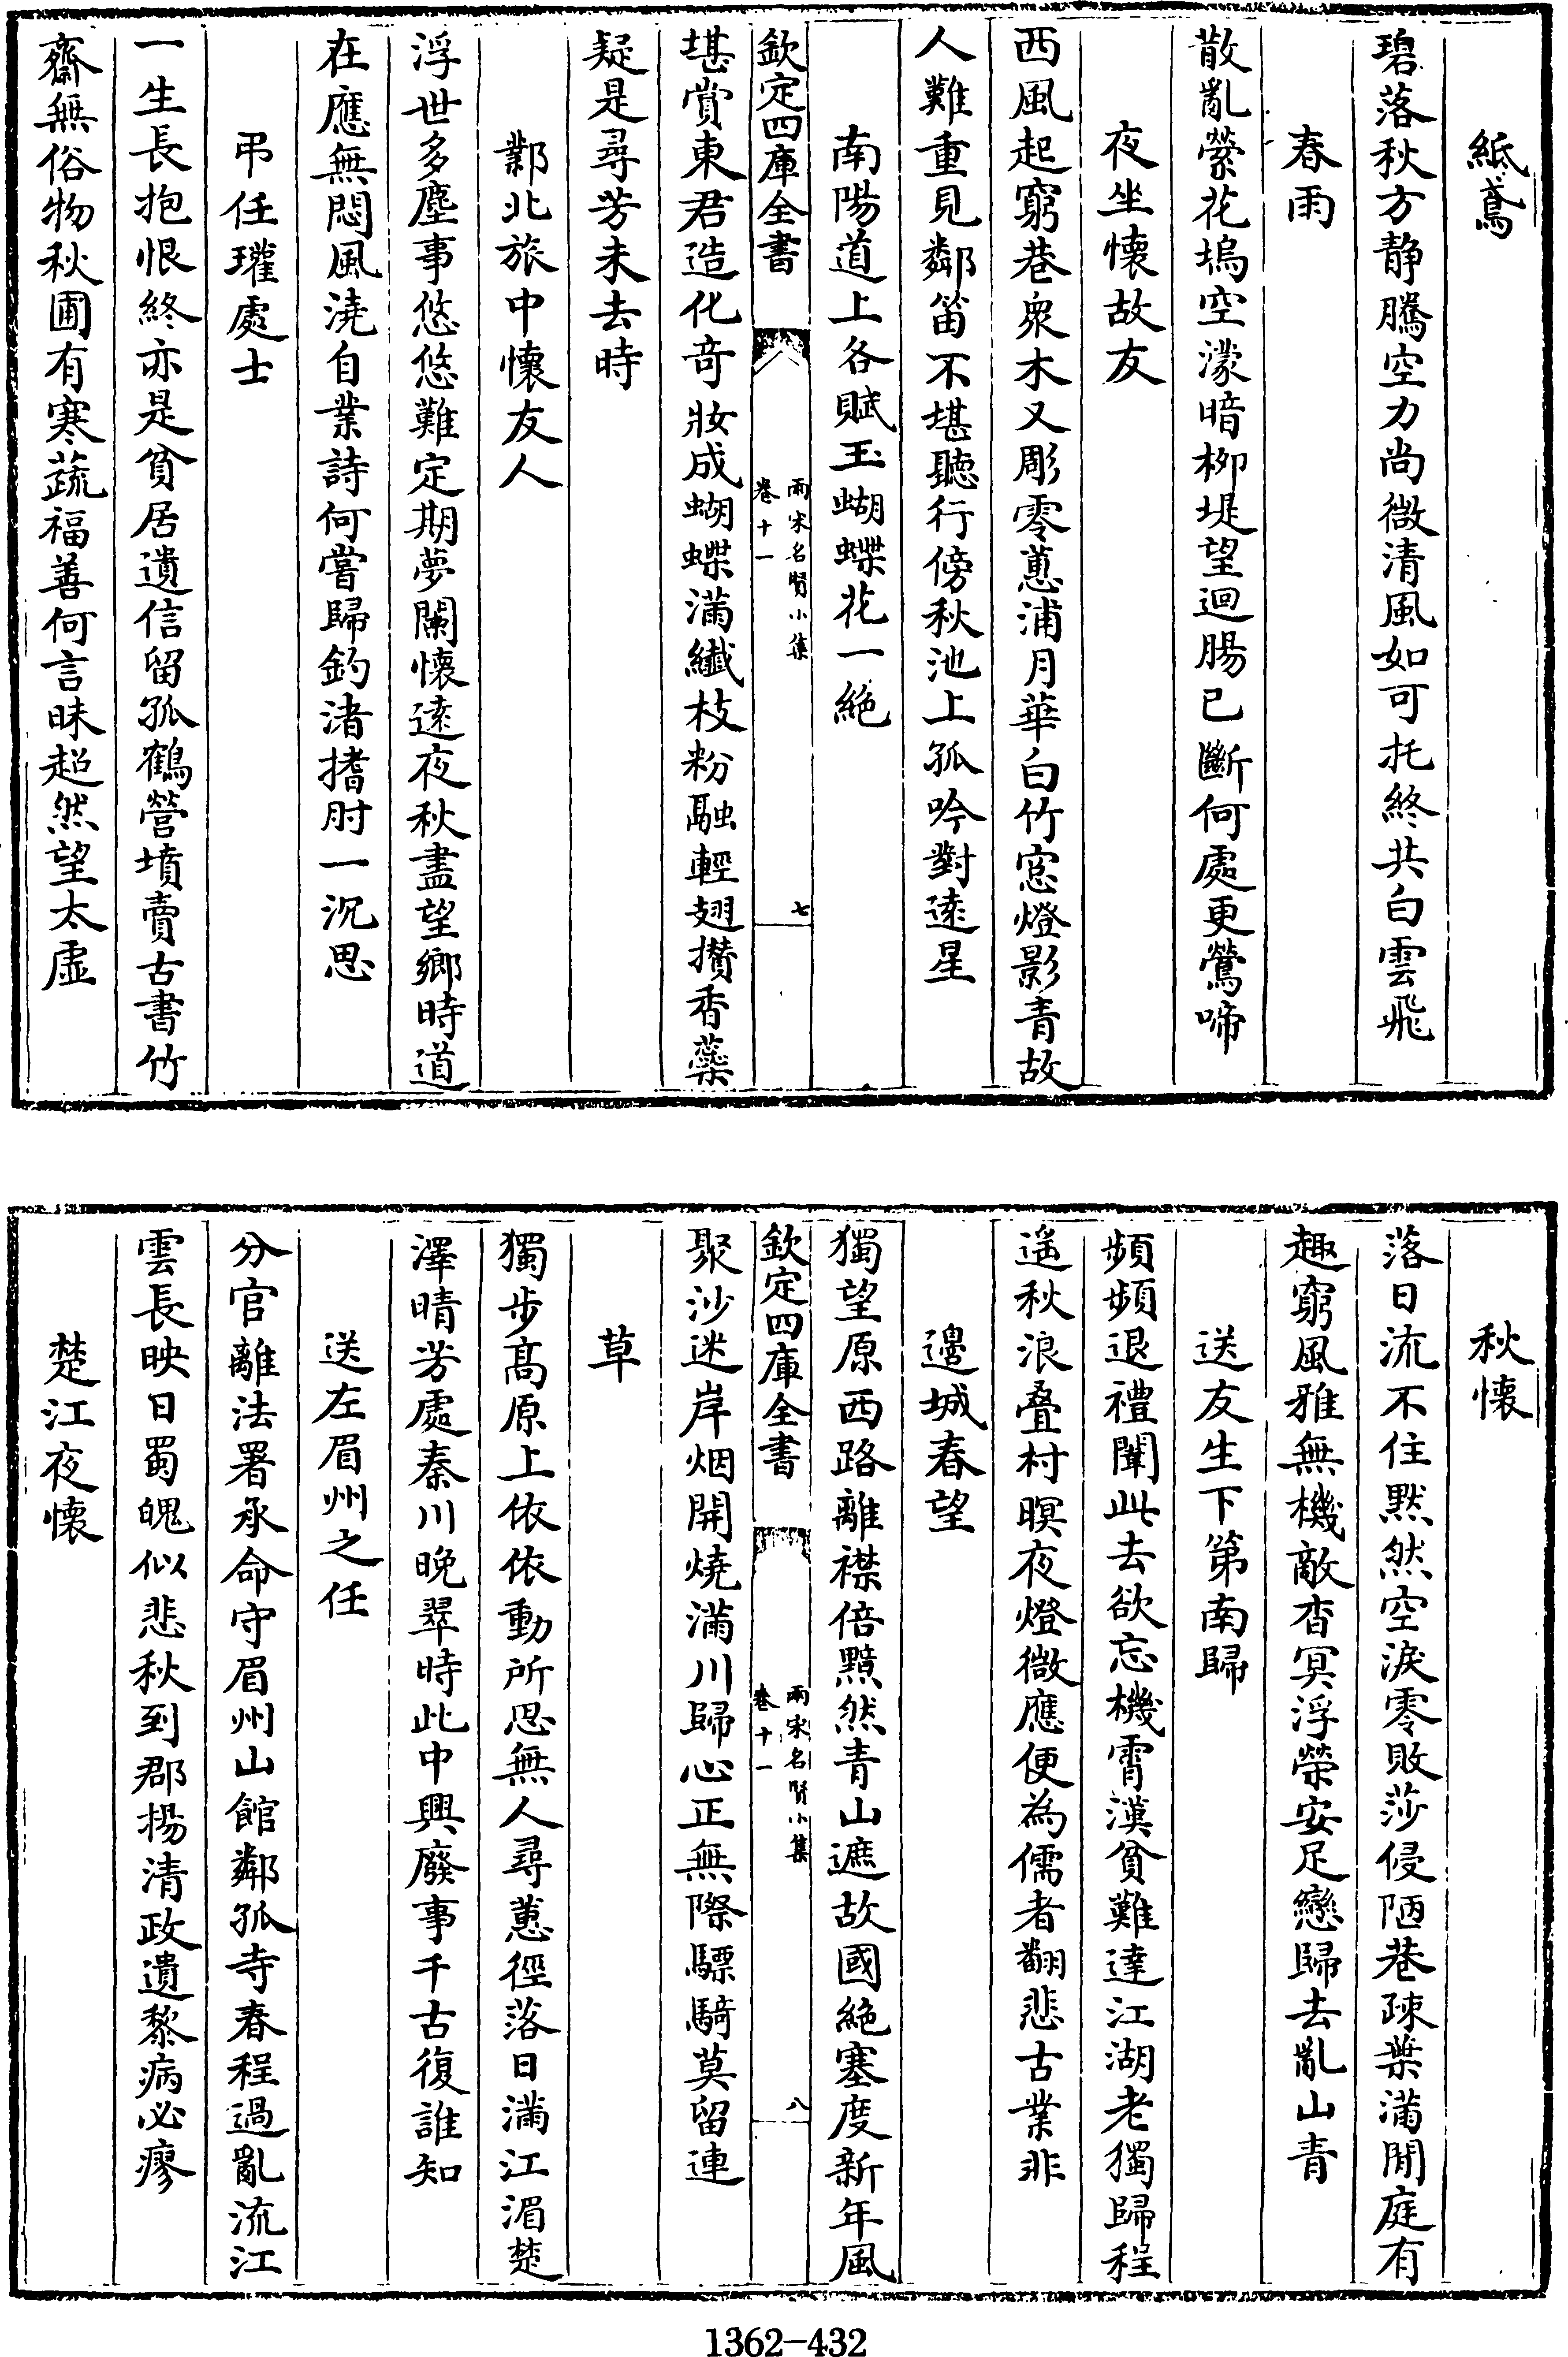 紙鳶
碧落秋方静騰空力尚微清風如可托終共白雲飛
春雨
散亂縈花塢空濛暗柳堤望迴腸已斷何處更鶯啼
夜坐懷故友
西風起窮巷衆木又彫零蕙浦月華白竹窓燈影青故
人難重見鄰笛不堪聽行傍秋池上孤吟對逺星
南陽道上各賦玉蝴蝶花一絶
欽定四庫全書
兩宋名賢小集
卷十一
七
堪賞東君造化竒妝成蝴蝶滿纎枝粉融輕翅攢香蘂
疑是尋芳未去時
鄴北旅中懷友人
浮世多塵事悠悠難定期夢闌懷逺夜秋盡望鄉時道
在應無悶風澆自業詩何嘗歸釣渚搘肘一沉思
弔任瓘處士
一生長抱恨終亦是貧居遺信留孤鶴營墳賣古書竹
齋無俗物秋圃有寒蔬福善何言昧超然望太虛
秋懷
落日流不住黙然空淚零敗莎侵陋巷疎葉滿閒庭有
趣窮風雅無機敵杳冥浮榮安足戀歸去亂山青
送友生下第南歸
頻頻退禮闈此去欲忘機霄漢貧難達江湖老獨歸程
遥秋浪疊村暝夜燈微應便為儒者翻悲古業非
邉城春望
獨望原西路離襟倍黯然青山遮故國絶塞度新年風
欽定四庫全書
兩宋名賢小集
卷十一
八
聚沙迷岸烟開燒滿川歸心正無際驃騎莫留連
草
獨步髙原上依依動所思無人尋蕙徑落日滿江湄楚
澤晴芳處秦川晚翠時此中興廢事千古復誰知
送左眉州之任
分官離法署承命守眉州山館鄰孤寺春程過亂流江
雲長映日蜀魄似悲秋到郡揚清政遺黎病必瘳
楚江夜懷
1362-432